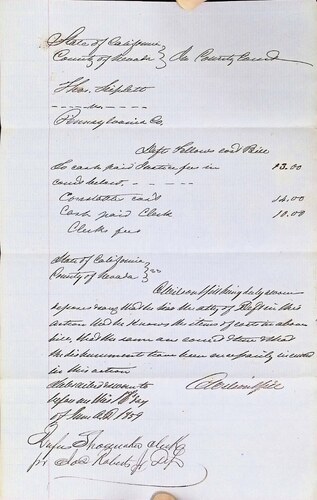 State of California
County of Nevada } In County Court
Thos. Triplett
vs
Pennsylvania Co.
Defts Fellows cost Bill
To cash paid Justice fees in
court below. 13.00
Constable cost 14.00
Cash paid Clerk 10.00
Clerks fees
State of California
County of Nevada } ss
being duly sworn
deposes & says that he is the atty of Deft in this
action that he knows the items of cost in above
bill, that the same are correct & that
the disbursements have been necessarily incurred
in this action
Subscribed & sworn to
before me this day
of June A.D. 1859
Rufus Shoemaker Clerk
pr Jno Roberts Jr D.C.